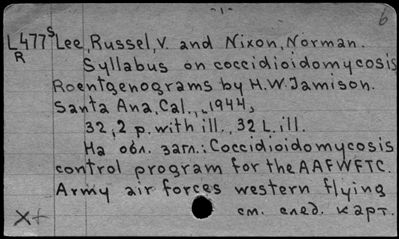 -1-
6
L477s Lee, Russel, V. and Nixon, Norman.
R
Syllabus on coccidioidomycosis
Roentgenograms by H.W. Jamison.
Santa Ana, Cal., 1944,
32, 2 p. with ill., 32 L. ill.
На обл. загл.: Coccidioidomycosis
control program for the AAFWFTC.
Army air forces western flying
см. след. карт.